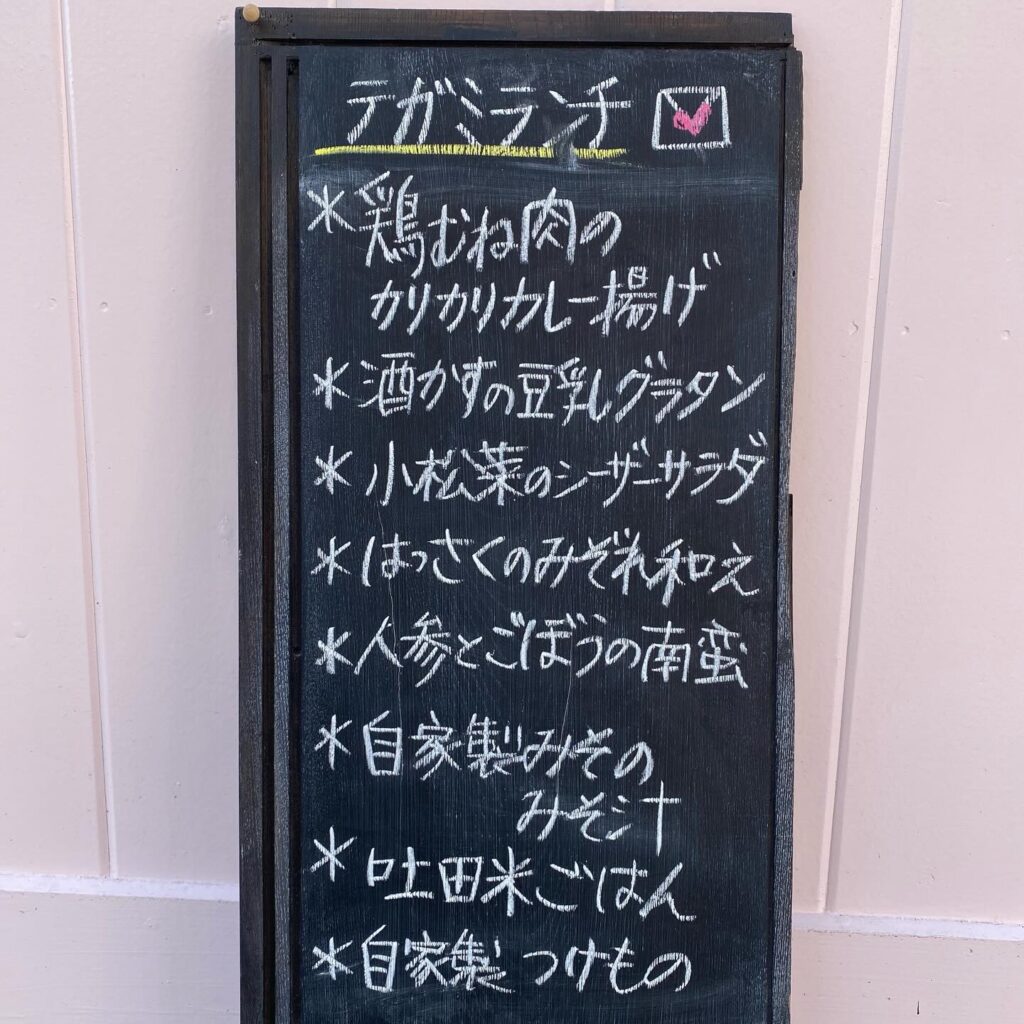 テガミランチ
*鶏むね肉の
カリカリカレー揚げ
*酒かすの豆乳グラタン
*小松菜のシーザーサラダ
*はっさくのみぞれ和え
*人参とごぼうの南蛮
*自家製みその
みそ汁
*吐田米ごはん
*自家製つけもの